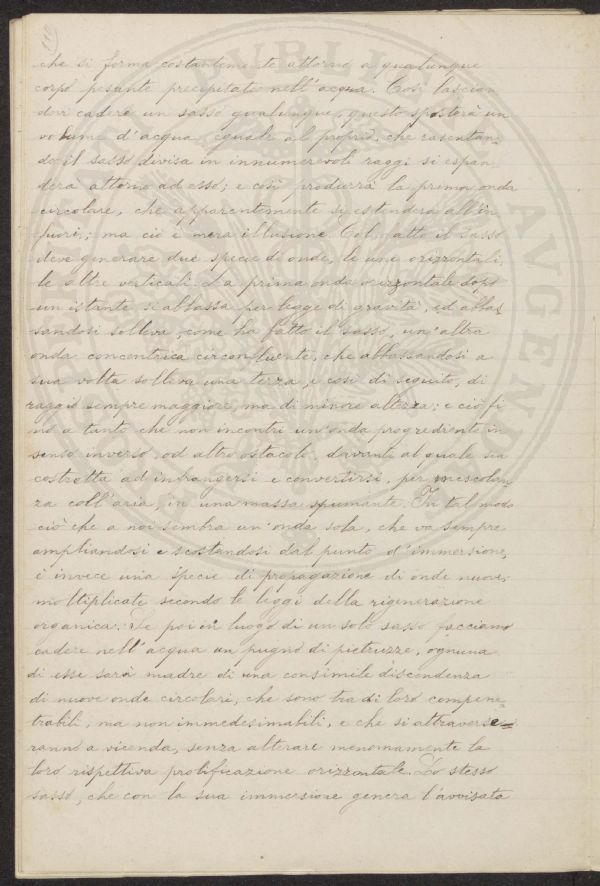 che si forma costantemente attorno a qualunque
corpo pesante precipitato nell'acqua. Così lascian
dovi cadere un sasso qualunque, questo sposterà un
volume d'acqua eguale al proprio, che rasentan-
do il sasso divisa in innumerevoli raggi si espan
derà attorno ad esso; e così produrrà la prima onda
circolare, che apparentemente si estenderà all'in
fuori; ma ciò è mera illusione. Col fatto il sasso
deve generare due specie di onde, le une orizzontali,
le altre verticali. La prima onda orizzontale dopo
un istante si abbassa per legge di gravità, ed abbas
sandosi solleva, come ha fatto il sasso, un'altra
onda concentrica circonfluente, che abbassandosi a
sua volta solleva una terza, e così di seguito, di
raggio sempre maggiore, ma di minore altezza; e ciò fi
no a tanto che non incontri un'onda progrediente in
senso inverso, od altro ostacolo, davanti al quale sia
costretta ad infrangersi e convertirsi, per mescolan
za coll'aria, in una massa spumante. In tal modo
ciò che a noi sembra un'onda sola, che va sempre
ampliandosi e scostandosi dal punto d'immersione,
è invece una specie di propagazione di onde nuove,
moltiplicate secondo le leggi della rigenerazione
organica. Se poi in luogo di un solo sasso facciamo
cadere nell'acqua un pugno di pietruzze, ognuna
di esse sarà madre di una consimile discendenza
di nuove onde circolari, che sono tra di loro compene-
trabili, ma non immedesimabili, e che si attraverse=
ranno a vicenda, senza alterare menomamente la
loro rispettiva prolificazione orizzontale. Lo stesso
sasso, che con la sua immersione genera l'avvisata